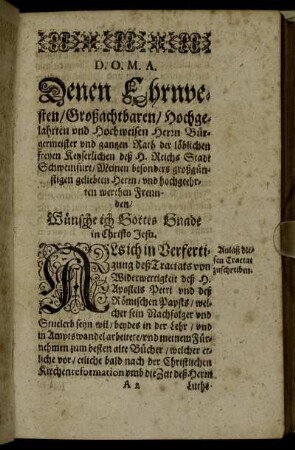 D. O. M. A.
Denen Ehrnve-
sten/Großachtbaren/Hochge-
lahrten vnd Hochweisen Herrn Bür-
germeister vnd gantzen Rath der löblichen
freyen Keyserlichen deß H. Reichs Stadt
Schweinfurt/Meinen besonders großgün-
stigen geliebten Herrn/vnd hochgeehr-
ten werthen Freun-
den/
Wünsche ich Gottes Gnade
in Christo Jesu.
ALs ich in Verferti-
gung deß Tractats von
Widerwertigkeit deß H.
Apostels Petri vnd deß
Römischen Papsts/wel-
cher sein Nachfolger vnd
Stuelerb seyn wil/beydes in der Lehr/vnd
in Amptswandel arbeitete/vnd meinem Für-
nehmen zum besten alte Bücher/welcher et-
liche vor/etliche bald nach der Christlichen
Kirchenreformation vmb die Zeit deß Herrn
Anlaß die-
sen Tractat
zuschreiben.
A 2
Luthe-